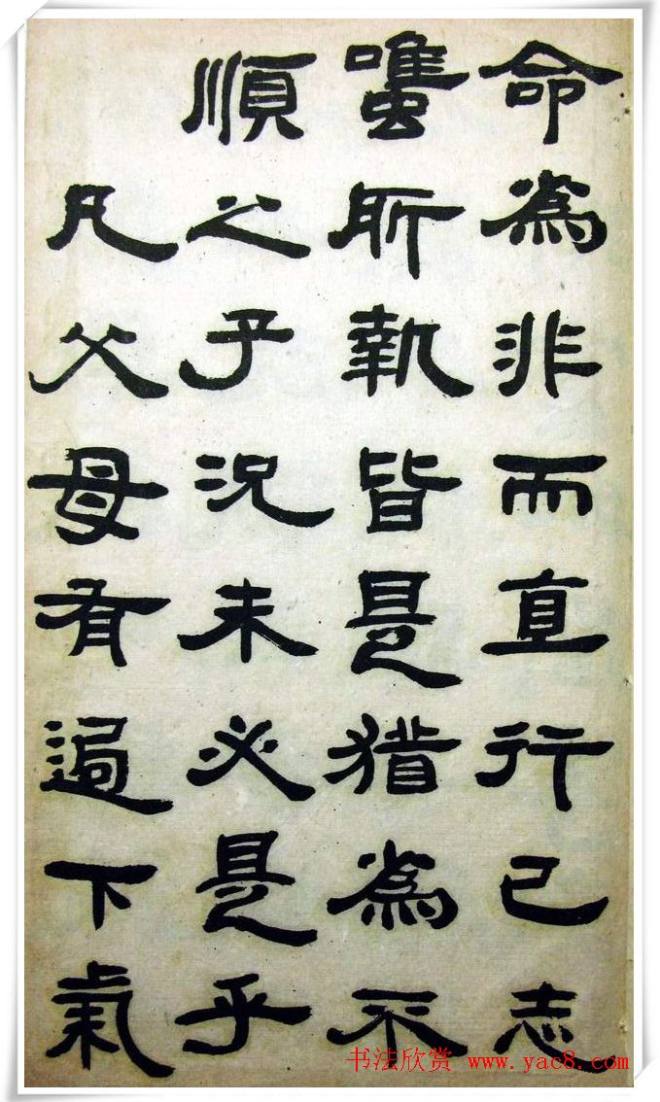 命為非而直行己志
雖所執皆是猶為不
順之子況未必是乎
凡父母有過下氣
书法欣赏 www.yac8.com